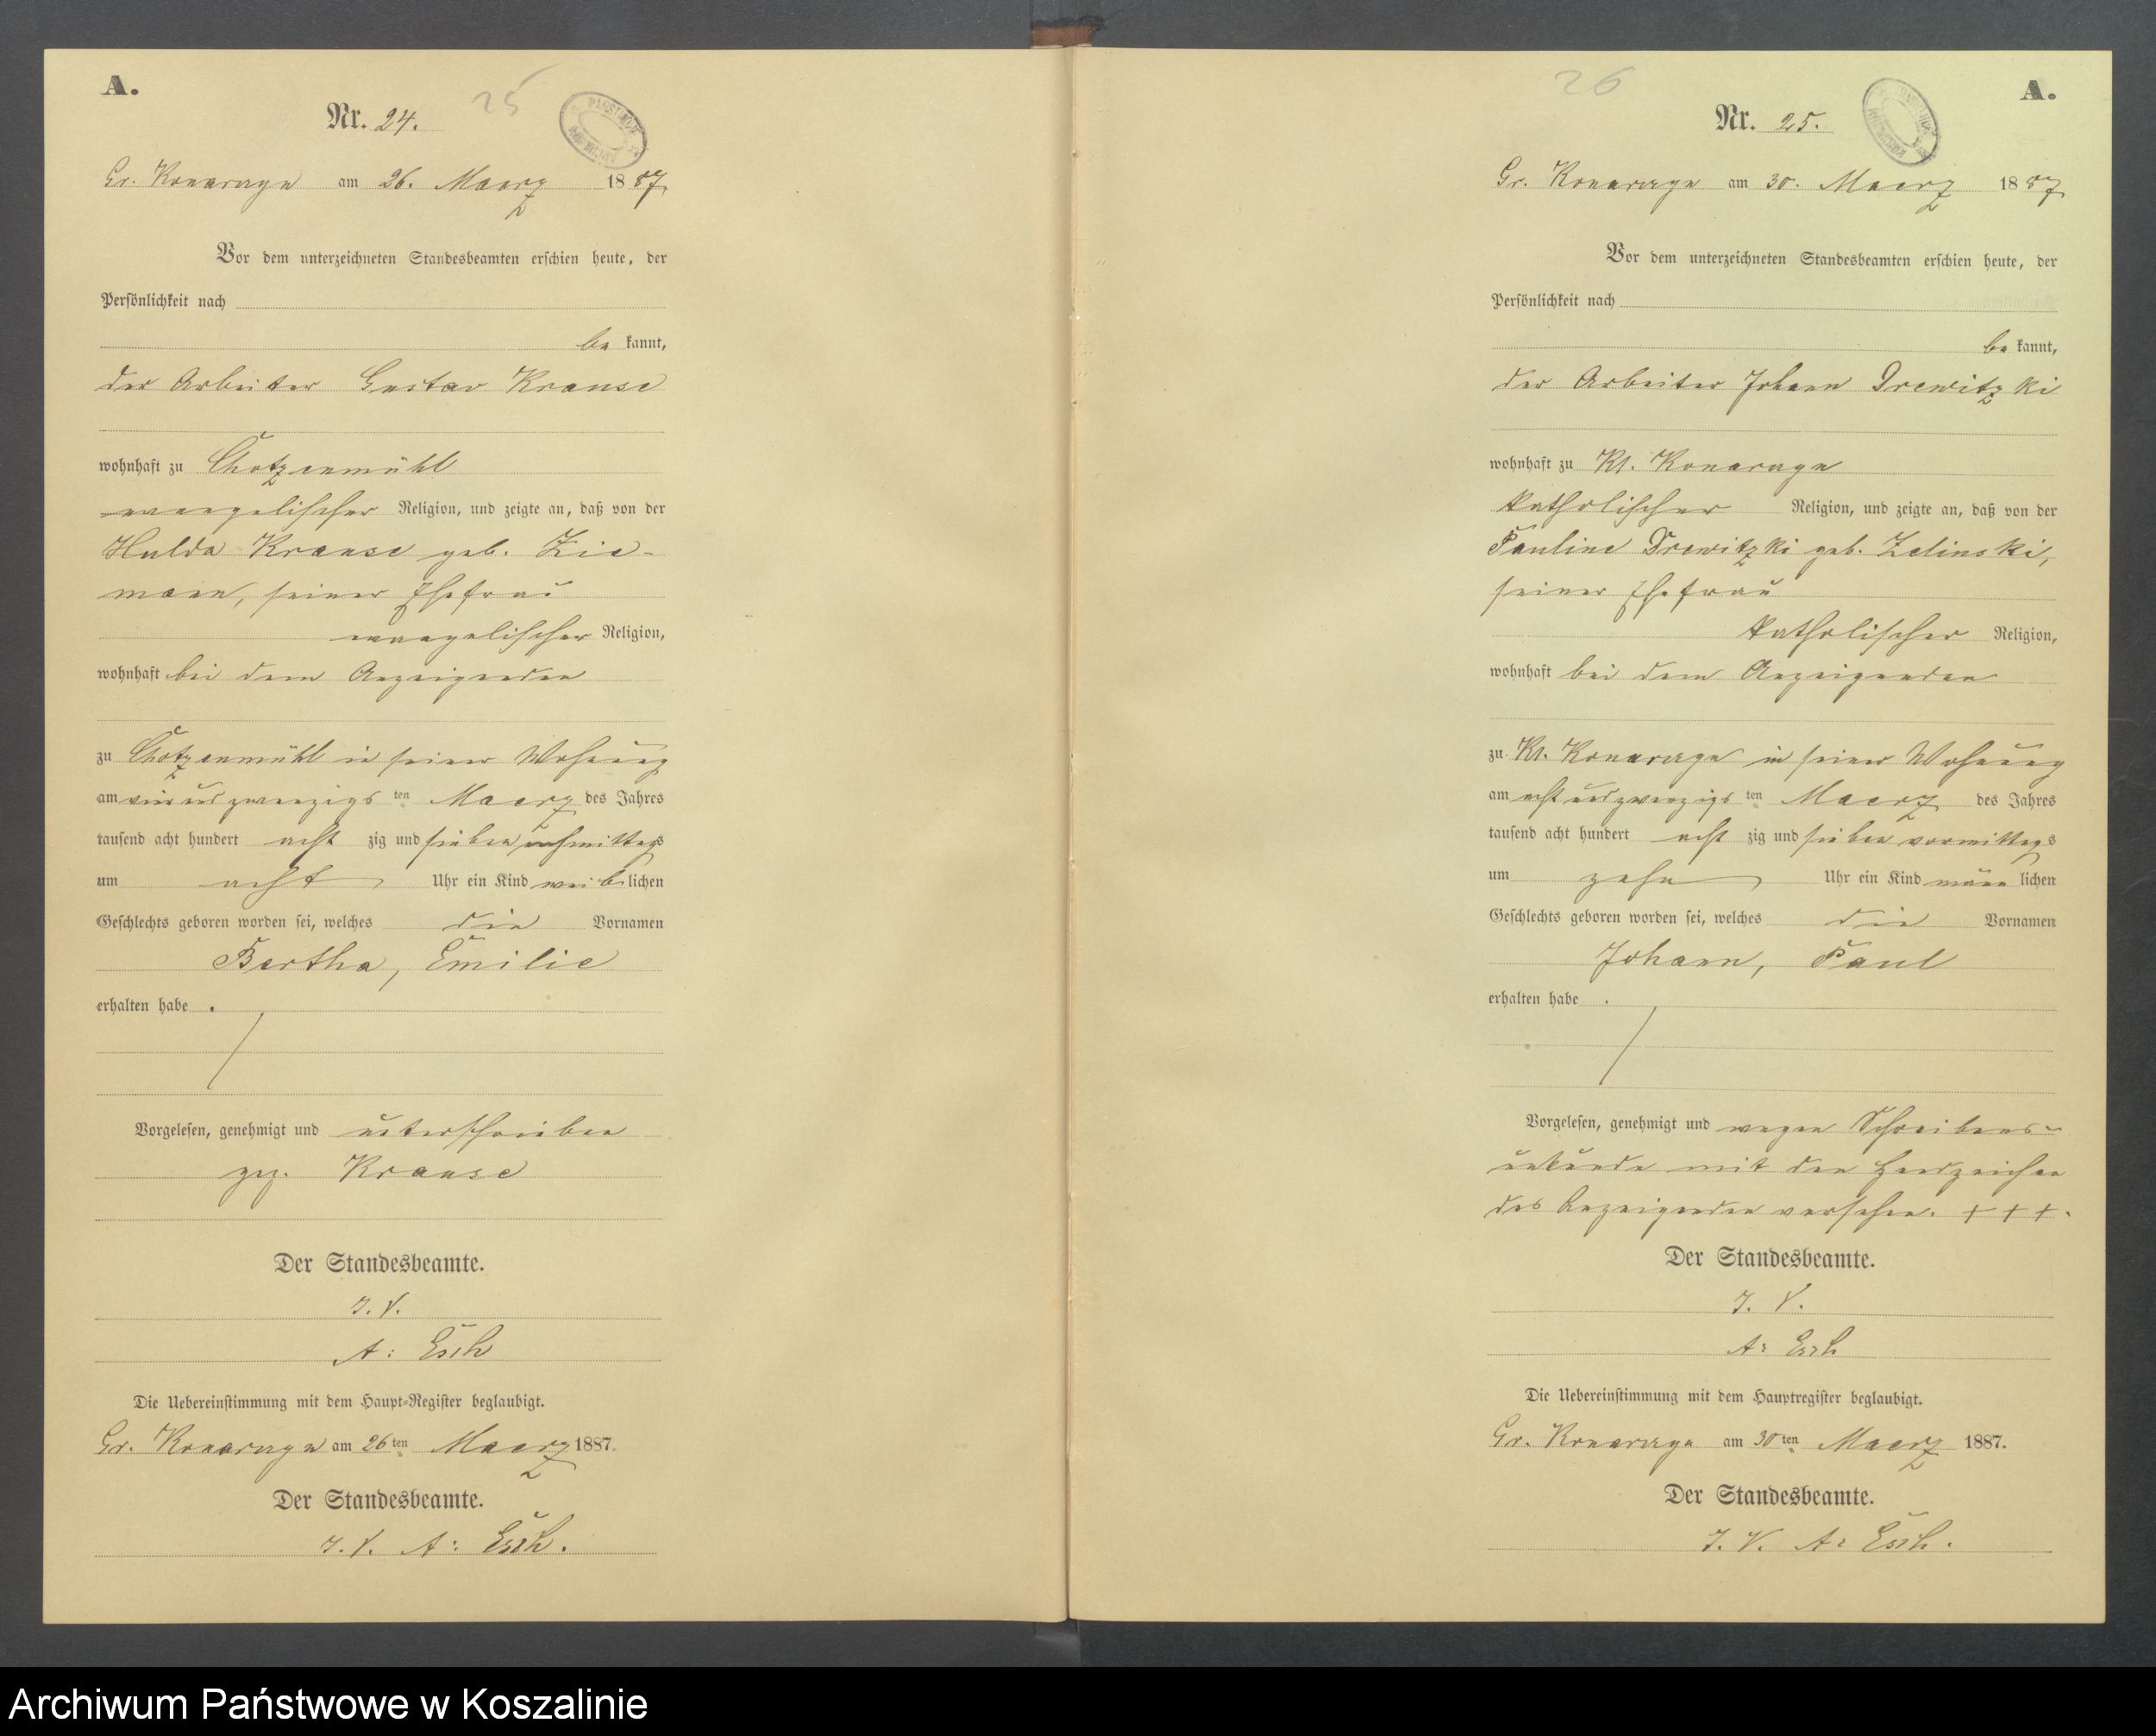 A.
Nr. 24.
25
Gr. Konarczyn am 26. Maerz 1887
Vor dem unterzeichneten Standesbeamten erschien heute, der
Persönlichkeit nach
be kannt,
der Arbeiter Gustav Krause
wohnhaft zu Chotzenmühl
evangelischer Religion, und zeigte an, daß von der
Hulda Krause geb. Zie-
mann, seiner Ehefrau
evangelischer Religion,
wohnhaft bei dem Anzeigenden
zu Chotzenmühl in seiner Wohnung
am vierundzwanzigs ten Maerz des Jahres
tausend acht hundert acht zig und sieben nachmittags
um acht Uhr ein Kind weiblichen
Geschlechts geboren worden sei, welches die Vornamen
Bertha, Emilie
erhalten habe .
Vorgelesen, genehmigt und unterschrieben
gez. Krause
Der Standesbeamte.
I. V.
A: Esch
Die Uebereinstimmung mit dem Haupt-Register beglaubigt.
Gr. Konarczyn am 26 ten Maerz 1887.
Der Standesbeamte.
I. V. A: Esch.
26
A.
Nr. 25.
Gr. Konarczyn am 30. Maerz 1887
Vor dem unterzeichneten Standesbeamten erschien heute, der
Persönlichkeit nach
be kannt,
der Arbeiter Johann Drewitzki
wohnhaft zu Kl. Konarczyn
katholischer Religion, und zeigte an, daß von der
Pauline Drewitzki geb. Zelinski,
seiner Ehefrau
katholischer Religion,
wohnhaft bei dem Anzeigenden
zu Kl. Konarczyn in seiner Wohnung
am achtundzwanzigs ten Maerz des Jahres
tausend acht hundert acht zig und sieben vormittags
um zehn Uhr ein Kind männlichen
Geschlechts geboren worden sei, welches die Vornamen
Johann, Paul
erhalten habe .
Vorgelesen, genehmigt und wegen Schreibens-
unkunde mit den Handzeichen
des Anzeigenden versehen. + + +.
Der Standesbeamte.
I. V.
A: Esch
Die Uebereinstimmung mit dem Hauptregister beglaubigt.
Gr. Konarczyn am 30 ten Maerz 1887.
Der Standesbeamte.
I. V. A: Esch.
Archiwum Państwowe w Koszalinie